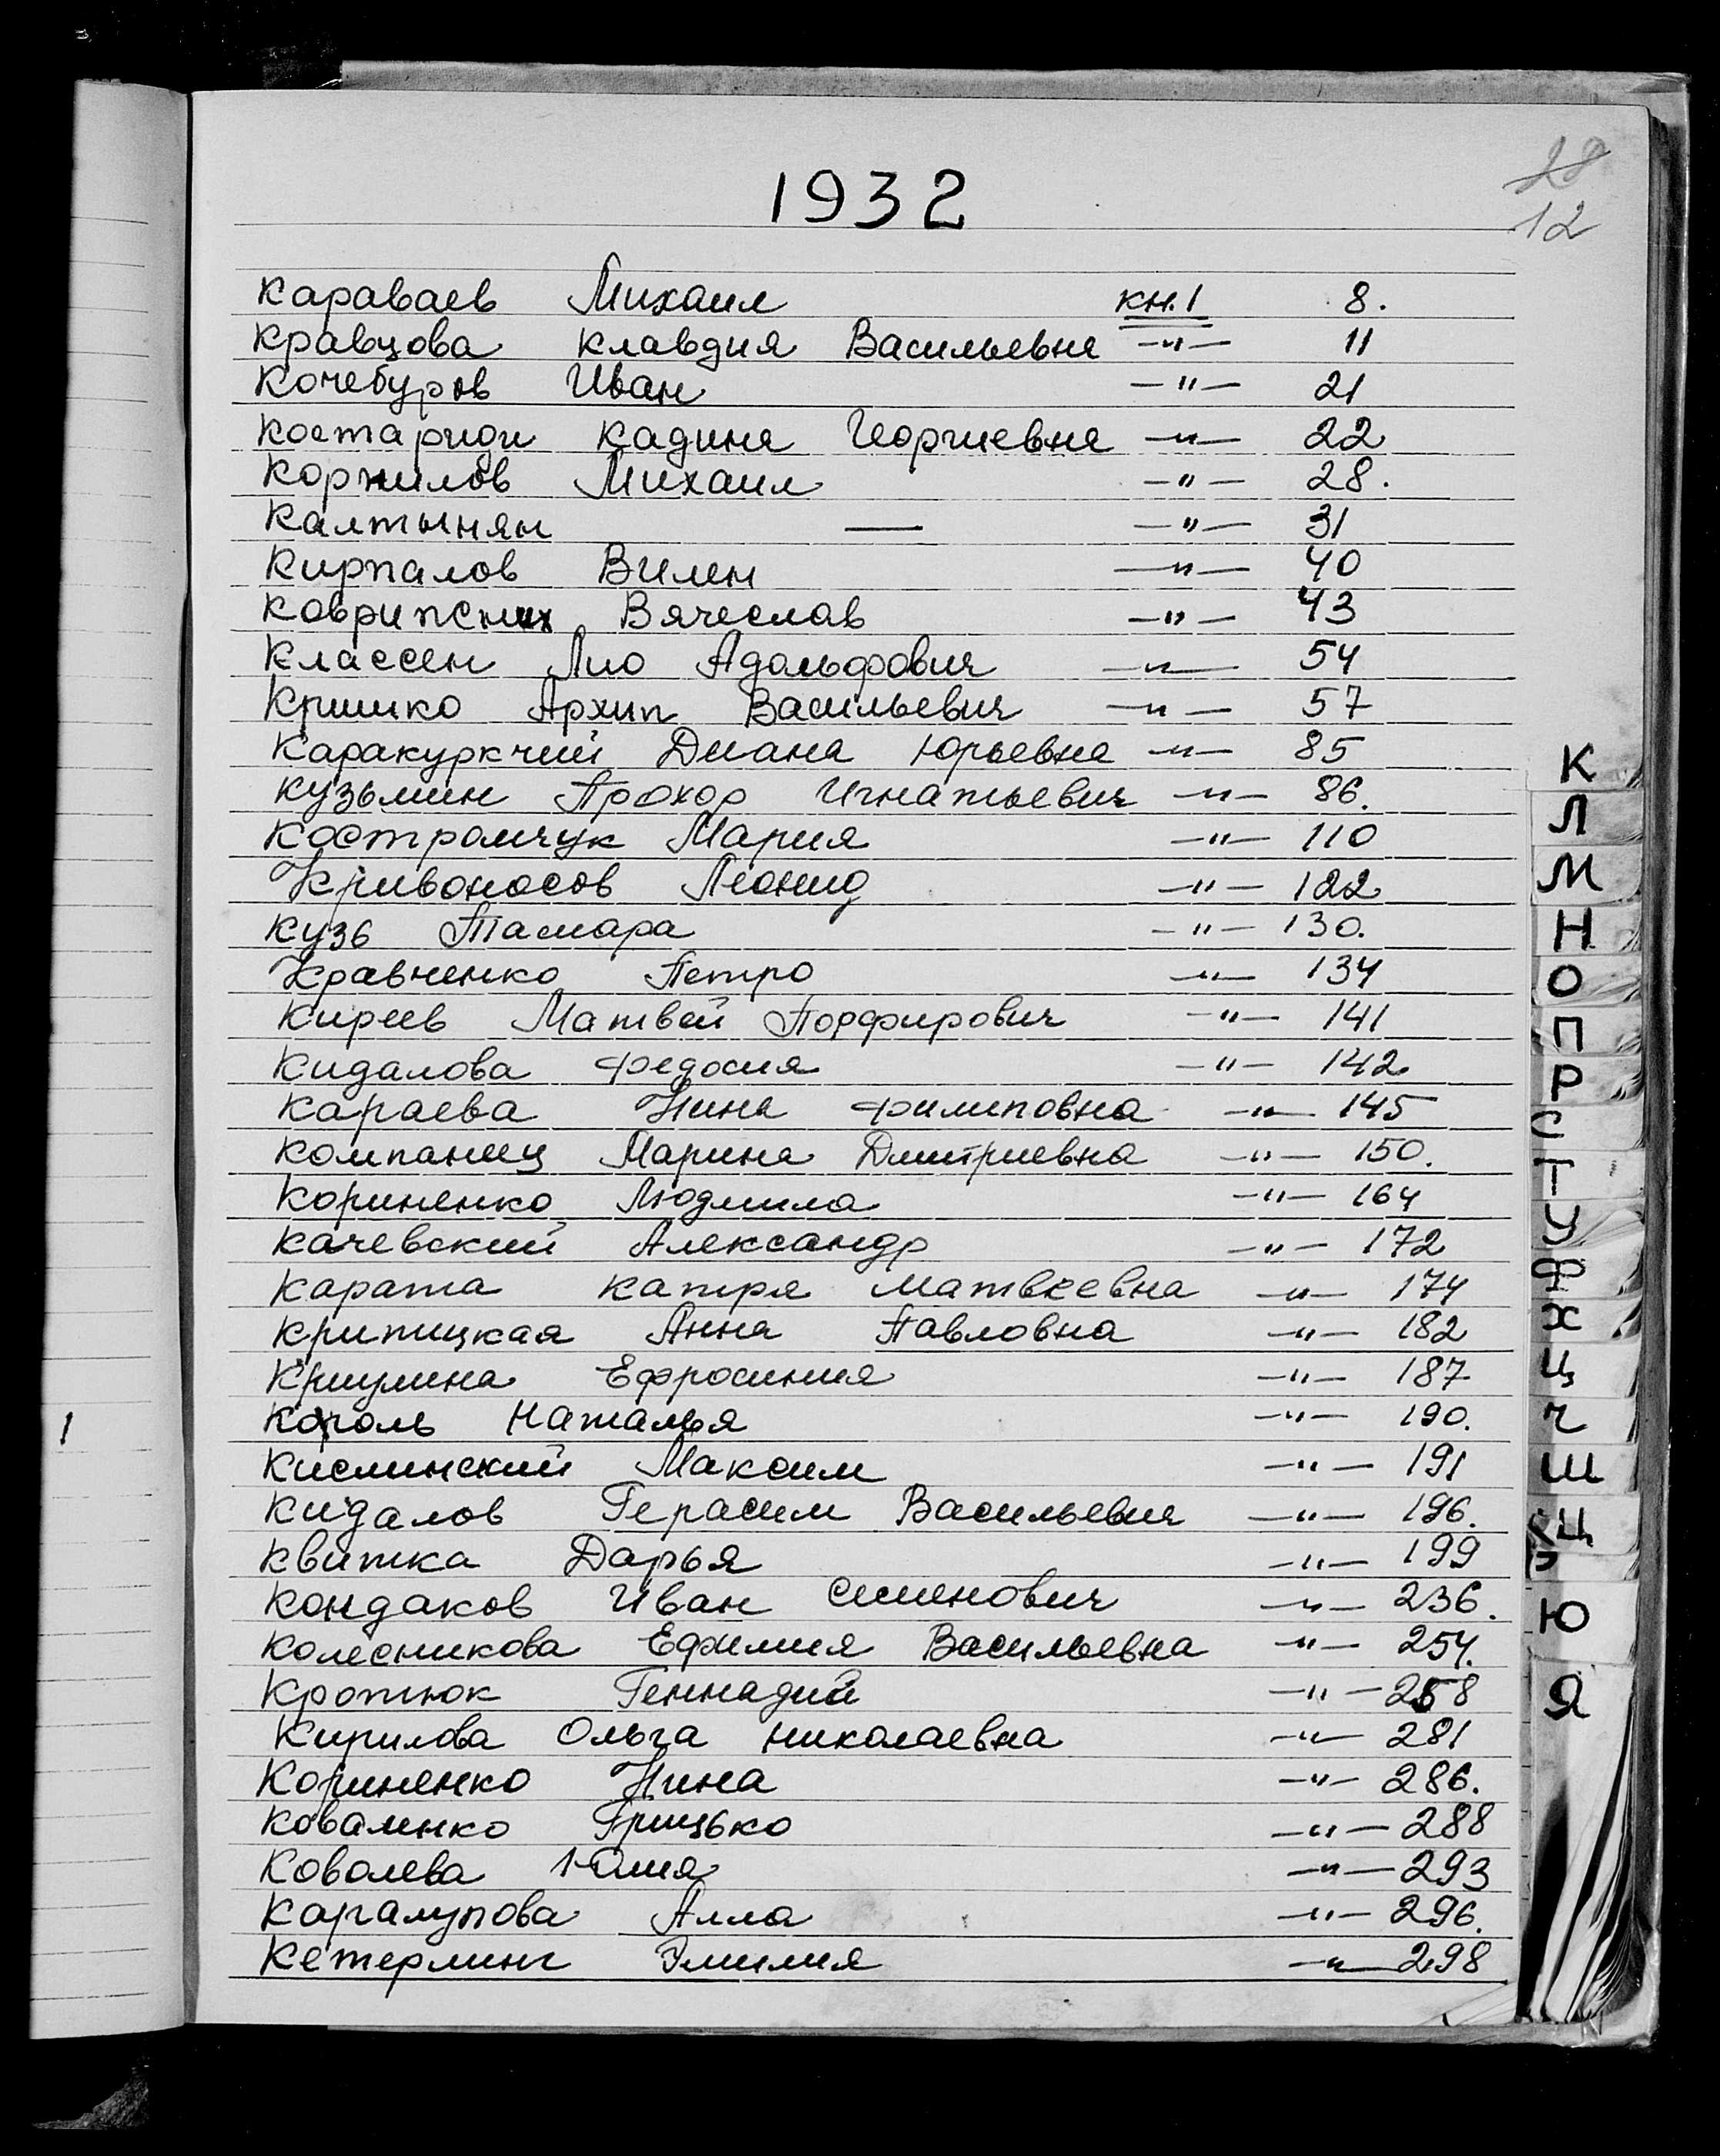 1932
28
12
Караваев Михаил кн.1 8.
Кравцова Клавдия Васильевна —"— 11
Кочебуров Иван —"— 21
Костариди Кадина Георгиевна —"— 22
Корнилов Михаил —"— 28.
Калтынян — —"— 31
Кирпалов Вилен —"— 40
Коврипских Вячеслав —"— 43
Классен Лио Адольфович —"— 54
Кришко Архип Васильевич —"— 57
Каракуркчий Диана Юрьевна —"— 85
Кузьмин Прохор Игнатьевич —"— 86.
Костромчук Мария —"— 110
Кривоносов Леонид —"— 122
Кузь Тамара —"— 130.
Кравченко Петро —"— 134
Киреев Матвей Порфирович —"— 141
Кидалова Федосия —"— 142
Караева Нина Филиповна —"— 145
Компаниец Марина Дмитриевна —"— 150.
Кориненко Людмила —"— 164
Качевский Александр —"— 172
Карата Катря Матвеевна —"— 174
Крипицкая Анна Павловна —"— 182
Криулина Ефросиния —"— 187
Король Наталья —"— 190.
Кислинский Максим —"— 191
Кидалов Герасим Васильевич —"— 196.
Квитка Дарья —"— 199
Кондаков Иван Семенович —"— 236.
Колесникова Ефимия Васильевна —"— 254.
Кротюк Геннадий —"— 258
Кирилова Ольга Николаевна —"— 281
Кориненко Нина —"— 286.
Коваленко Грицько —"— 288
Ковалева Юлия —"— 293
Каргалупова Алла —"— 296.
Кетерлинг Эмилия —"— 298
К
Л
М
Н
О
П
Р
С
Т
У
Ф
Х
Ц
Ч
Ш
Щ
Э
Ю
Я
1